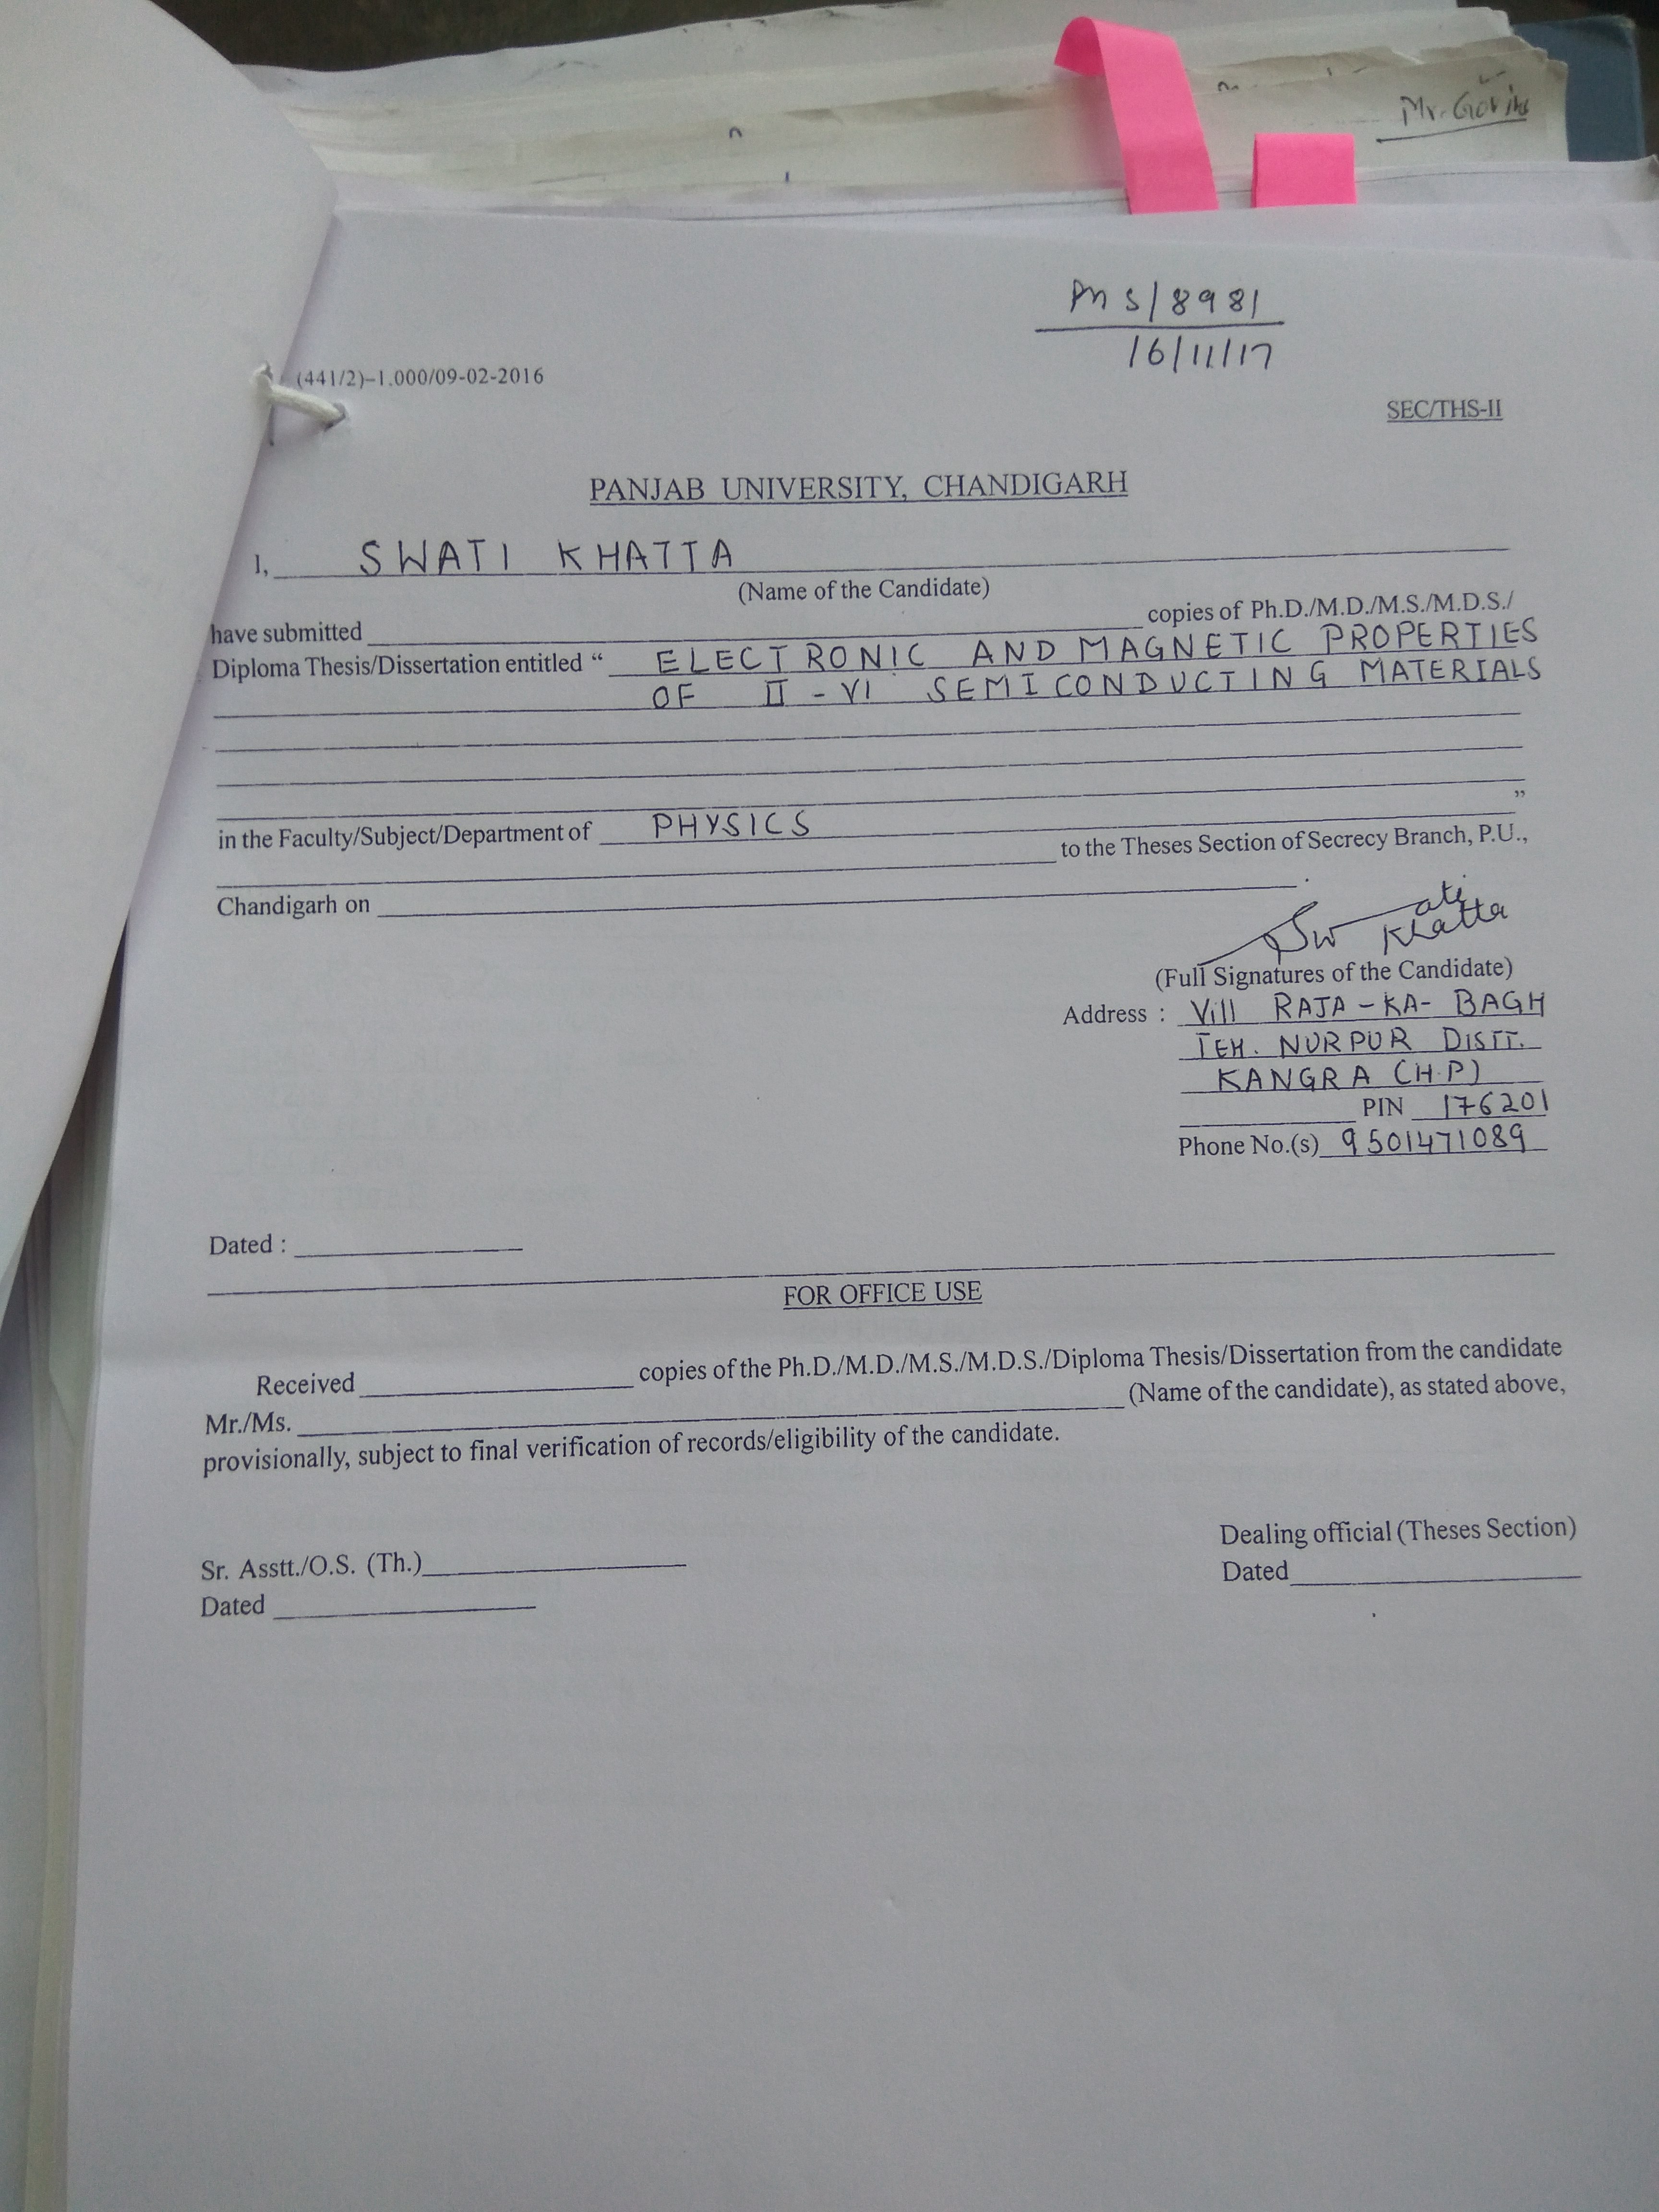 PM S/8981
16/11/17
(441/2)–1.000/09-02-2016
SEC/THS-II
PANJAB UNIVERSITY, CHANDIGARH
I, SWATI KHATTA
(Name of the Candidate)
have submitted ____ copies of Ph.D./M.D./M.S./M.D.S./
Diploma Thesis/Dissertation entitled “ ELECTRONIC AND MAGNETIC PROPERTIES
OF II - VI SEMICONDUCTING MATERIALS
”
in the Faculty/Subject/Department of PHYSICS
____ to the Theses Section of Secrecy Branch, P.U.,
Chandigarh on ____.
Swati Khatta
(Full Signatures of the Candidate)
Address : Vill RAJA - KA - BAGH
TEH. NURPUR DISTT.
KANGRA (H.P)
PIN 176201
Phone No.(s) 9501471089
Dated : ____
FOR OFFICE USE
Received ____ copies of the Ph.D./M.D./M.S./M.D.S./Diploma Thesis/Dissertation from the candidate
Mr./Ms. ____ (Name of the candidate), as stated above,
provisionally, subject to final verification of records/eligibility of the candidate.
Dealing official (Theses Section)
Sr. Asstt./O.S. (Th.) ____
Dated ____
Dated ____